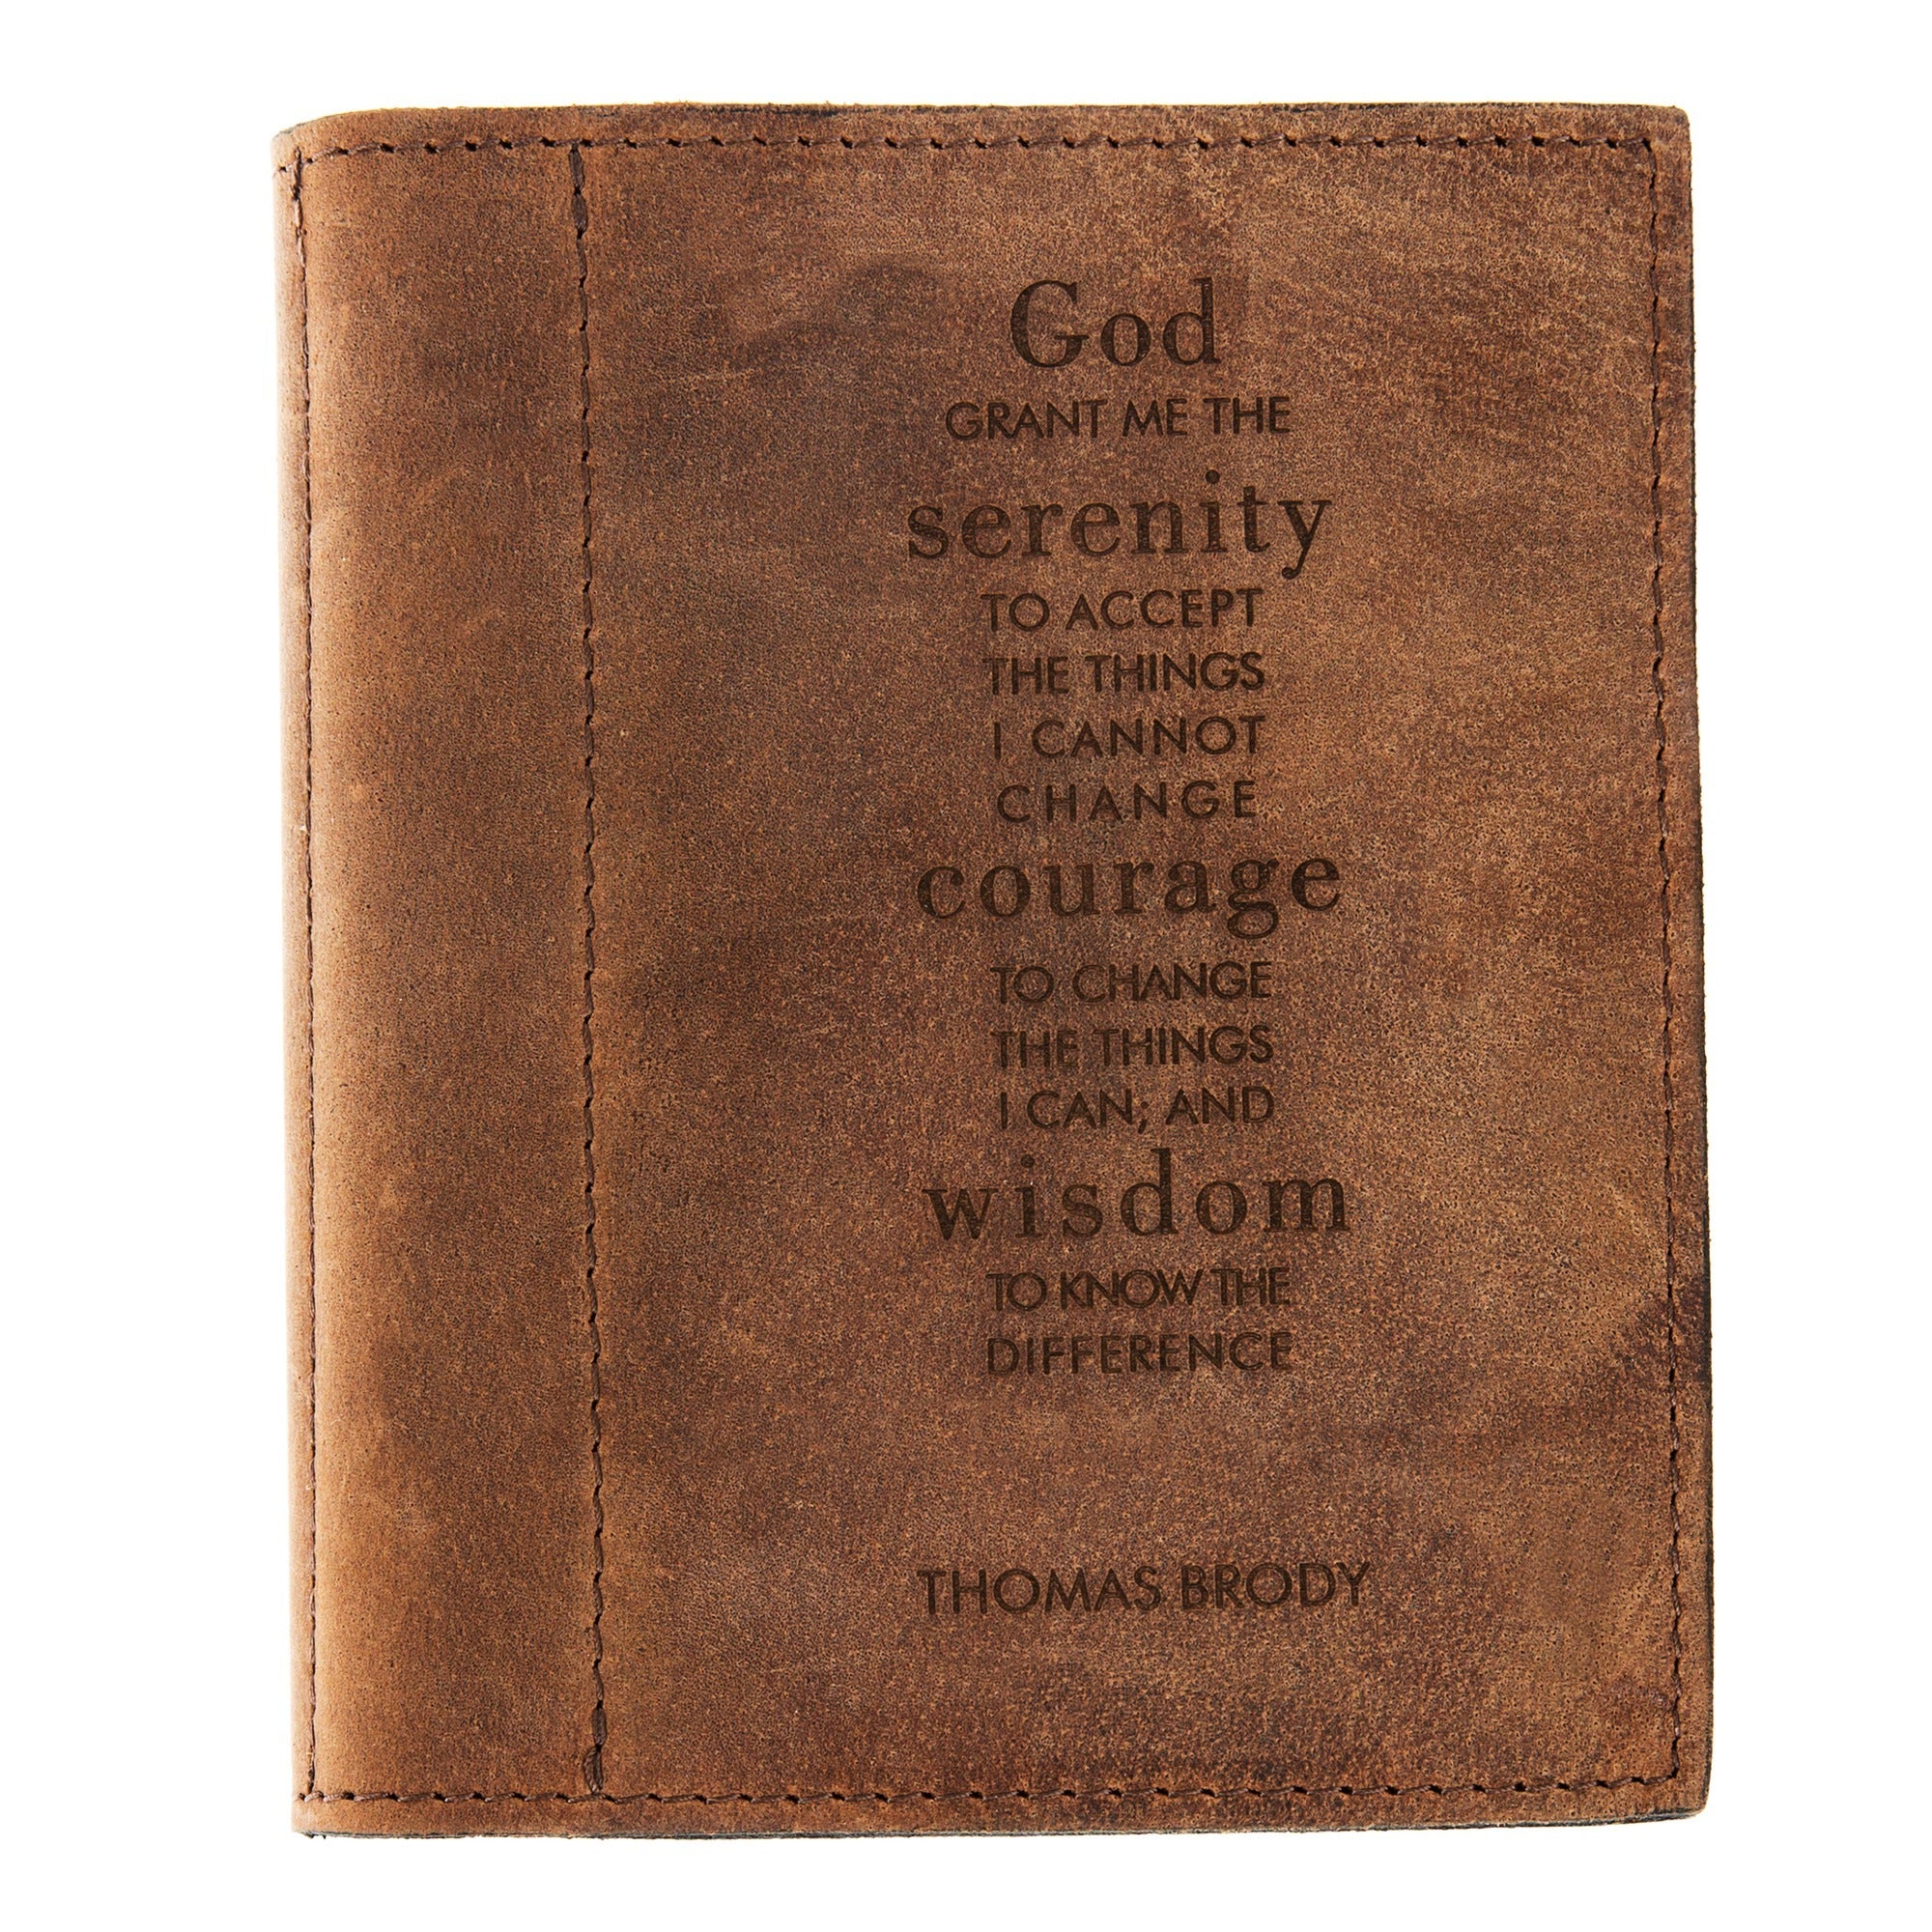 God
GRANT ME THE
serenity
TO ACCEPT
THE THINGS
I CANNOT
CHANGE
courage
TO CHANGE
THE THINGS
I CAN; AND
wisdom
TO KNOW THE
DIFFERENCE
THOMAS BRODY